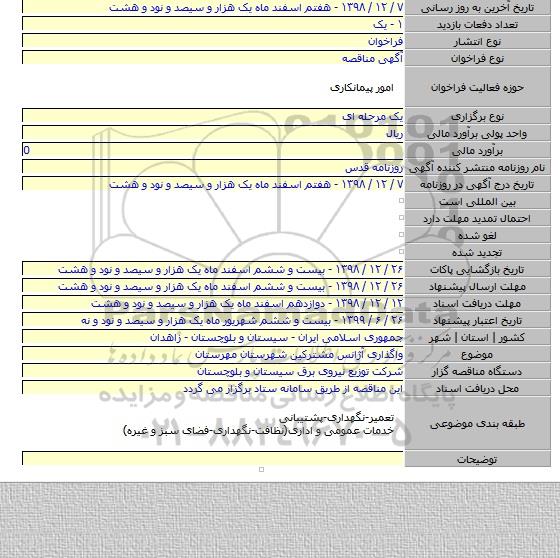 تاریخ آخرین به روز رسانی ۷ / ۱۲ / ۱۳۹۸ - هفتم اسفند ماه یک هزار و سیصد و نود و هشت
تعداد دفعات بازدید ۱ - یک
نوع انتشار فراخوان
نوع فراخوان آگهی مناقصه
حوزه فعالیت فراخوان امور پیمانکاری
نوع برگزاری یک مرحله ای
واحد پولی برآورد مالی ریال
برآورد مالی 0
نام روزنامه منتشر کننده آگهی روزنامه قدس
تاریخ درج آگهی در روزنامه ۷ / ۱۲ / ۱۳۹۸ - هفتم اسفند ماه یک هزار و سیصد و نود و هشت
بین المللی است
احتمال تمدید مهلت دارد
لغو شده
تجدید شده
تاریخ بازگشایی پاکات ۲۶ / ۱۲ / ۱۳۹۸ - بیست و ششم اسفند ماه یک هزار و سیصد و نود و هشت
مهلت ارسال پیشنهاد ۲۶ / ۱۲ / ۱۳۹۸ - بیست و ششم اسفند ماه یک هزار و سیصد و نود و هشت
مهلت دریافت اسناد ۱۲ / ۱۲ / ۱۳۹۸ - دوازدهم اسفند ماه یک هزار و سیصد و نود و هشت
تاریخ اعتبار پیشنهاد ۲۶ / ۶ / ۱۳۹۹ - بیست و ششم شهریور ماه یک هزار و سیصد و نود و نه
کشور | استان | شهر جمهوری اسلامی ایران - سیستان و بلوچستان - زاهدان
موضوع واگذاری آژانس مشترکین شهرستان مهرستان
دستگاه مناقصه گزار شرکت توزیع نیروی برق سیستان و بلوچستان
محل دریافت اسناد این مناقصه از طریق سامانه ستاد برگزار می گردد
طبقه بندی موضوعی تعمیر-نگهداری-پشتیبانی
خدمات عمومی و اداری(نظافت-نگهداری-فضای سبز و غیره)
توضیحات
ParsNamadData
پایگاه اطلاع رسانی مناقصه و مزایده
۰۲۱-۸۸۳۴۹۶۷۰-۵